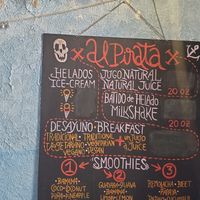 x al Pirata x
HELADOS JUGO NATURAL
ICE-CREAM NATURAL JUICE
BATIDO de Helado 20 OZ
MILKSHAKE
DESAYUNO-BREAKFAST 20 OZ
TRADICIONAL TRADITIONAL
VEGETARIANO
VEGAN
JUGO
JUICE
SMOOTHIES
1 2 3
BANANA
COCO-COCONUT
PIÑA-PINEAPPLE
GUAYABA-GUAVA
BANANA
LIMON
REMOLACHA-BEET